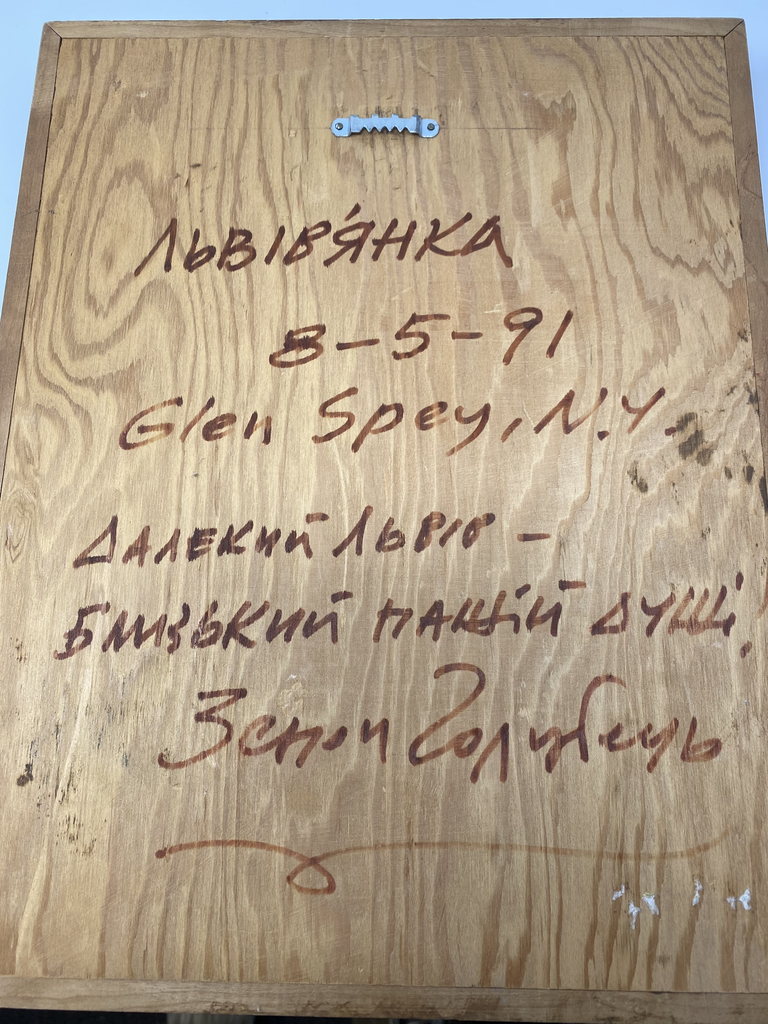 ЛЬВІВ'ЯНКА
8-5-91
Glen Spey, N.Y.
ДАЛЕКИЙ ЛЬВІВ -
БЛИЗЬКИЙ НАШІЙ ДУШІ!
Зенон Голубець